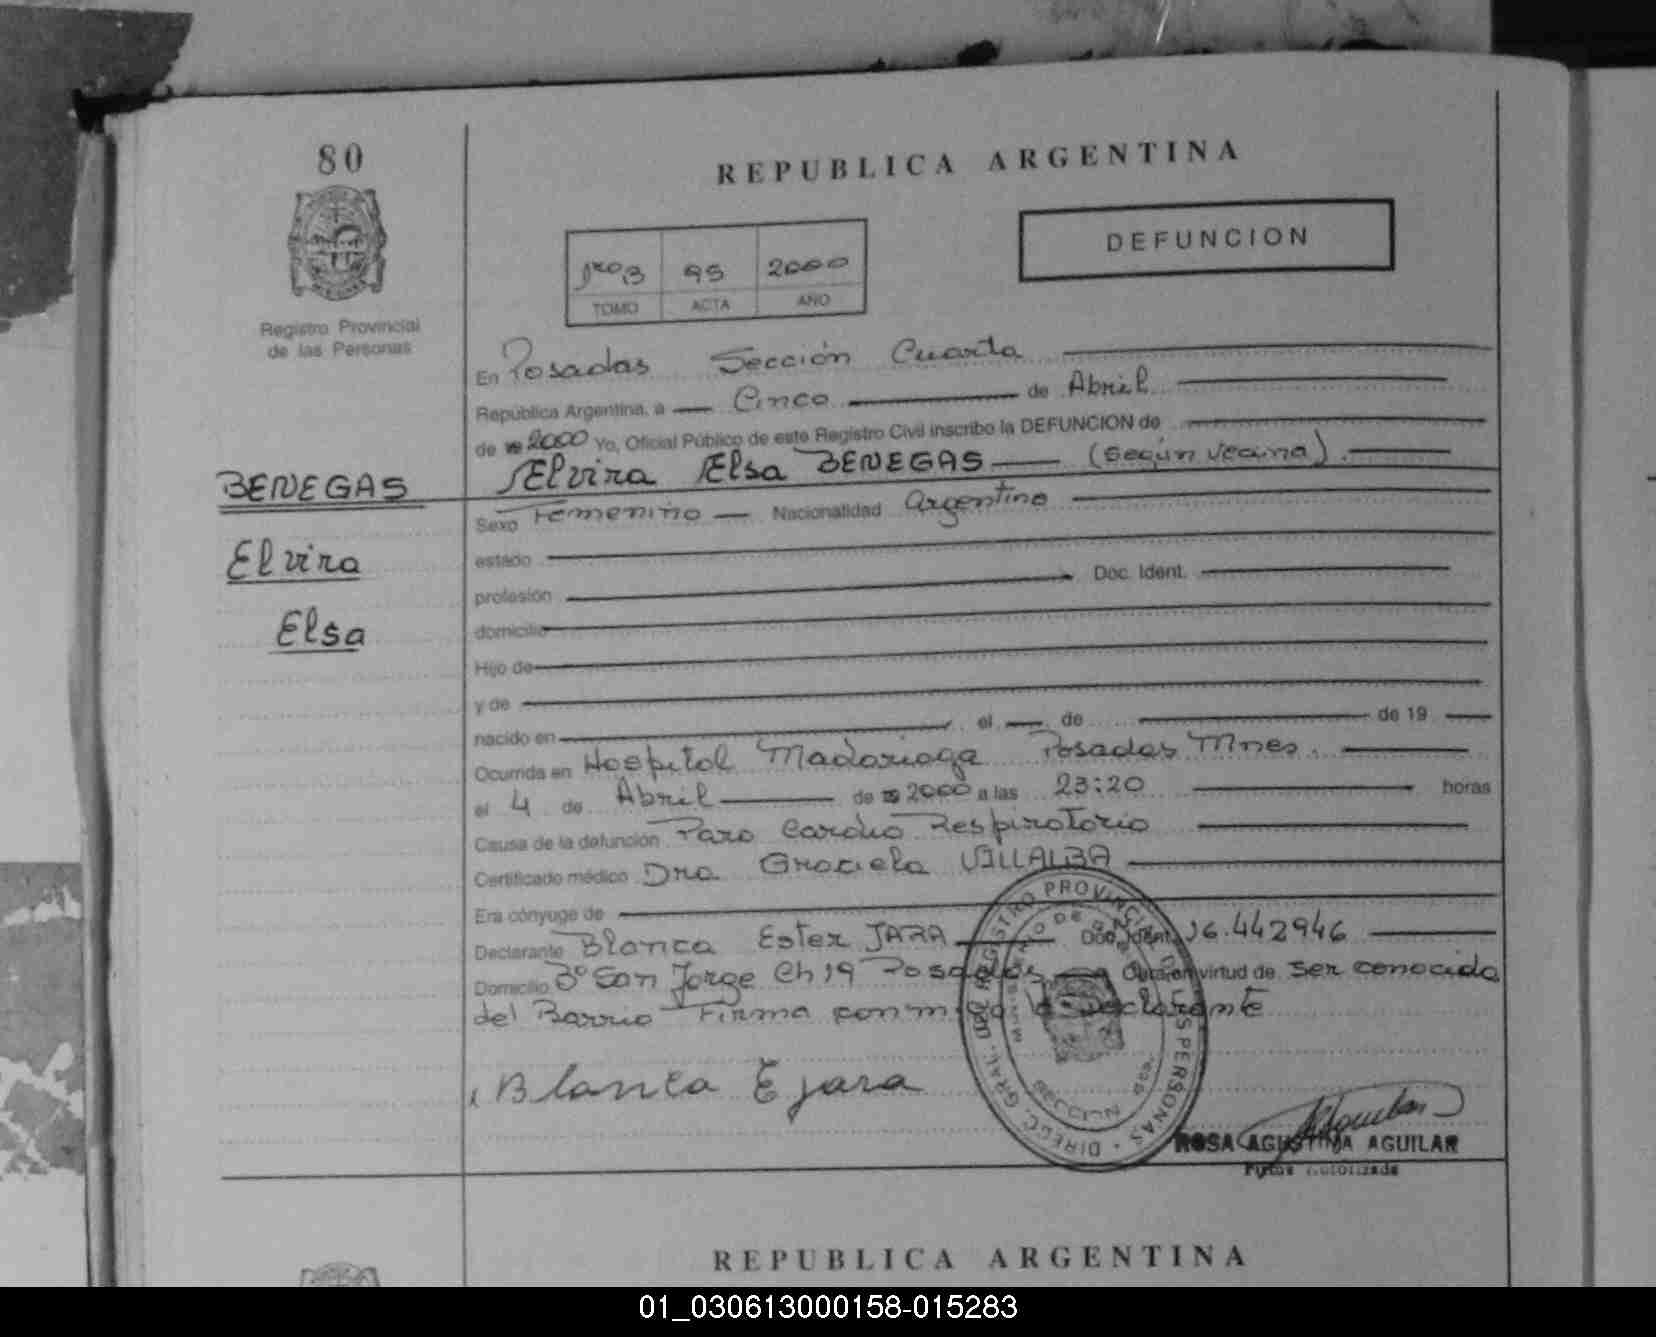 80
REPUBLICA ARGENTINA
DEFUNCION
95 2000
TOMO ACTA AÑO
Registro Provincial
de las Personas
En Posadas Sección Cuarta
República Argentina, a Cinco de Abril
de 2000 Yo, Oficial Público de este Registro Civil inscribo la DEFUNCION de
BENEGAS
Elvira
Elsa
Elvira Elsa BENEGAS (según vecina)
Sexo Femenino Nacionalidad Argentina
estado
profesión Doc. Ident.
domicilio
Hijo de
y de
nacido en el de de 19
Ocurrida en Hospital Madariaga Posadas Mnes.
el 4 de Abril de 2000 a las 23:20 horas
Causa de la defunción Paro Cardio Respiratorio
Certificado médico Dra Graciela VILLALBA
Era cónyuge de
Declarante Blanca Ester JARA Doc. Ident. 16.442946
Domicilio Bº San Jorge Ch 19 Posadas Obra en virtud de ser conocida
del Barrio Firma conmigo la declarante
Blanca E jara
DIRECC. GRAL. DEL REGISTRO PROVINCIAL DE LAS PERSONAS
SECCION
ROSA AGUSTINA AGUILAR
Firma Autorizada
REPUBLICA ARGENTINA
01_030613000158-015283